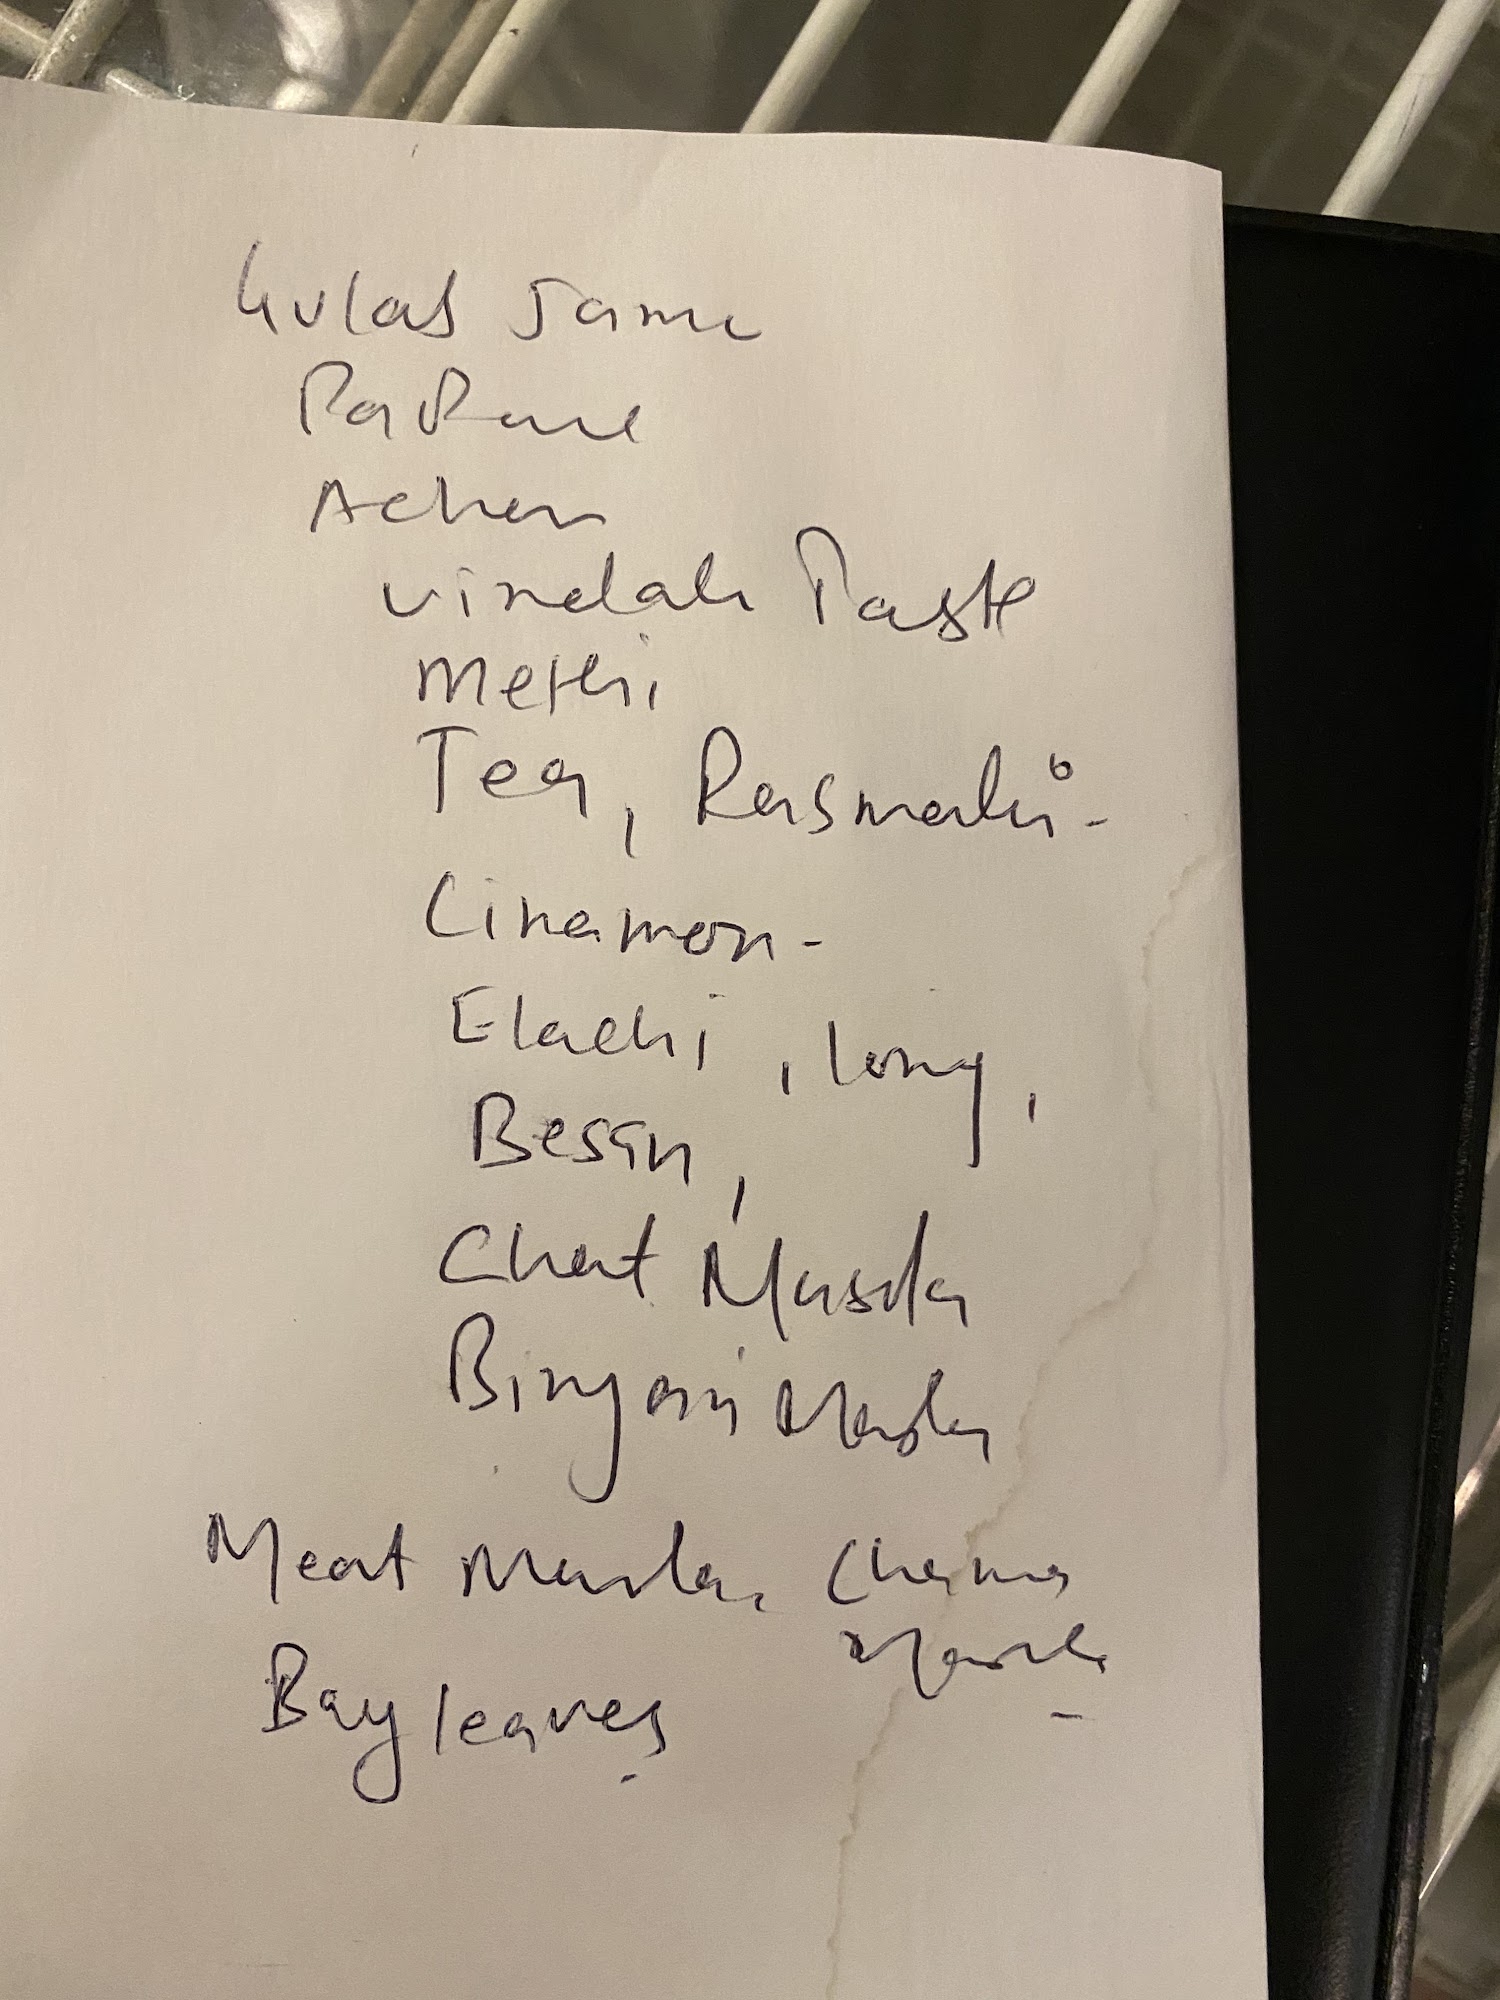 Gulab Jamu
Acher
Vindalu Paste
Methi
Tea, Rasmalai-
Cinamon-
Elachi, long,
Besan,
Chat Masala
Biryani Masala
Meat Masala, Channa
Masala
Bay leaves